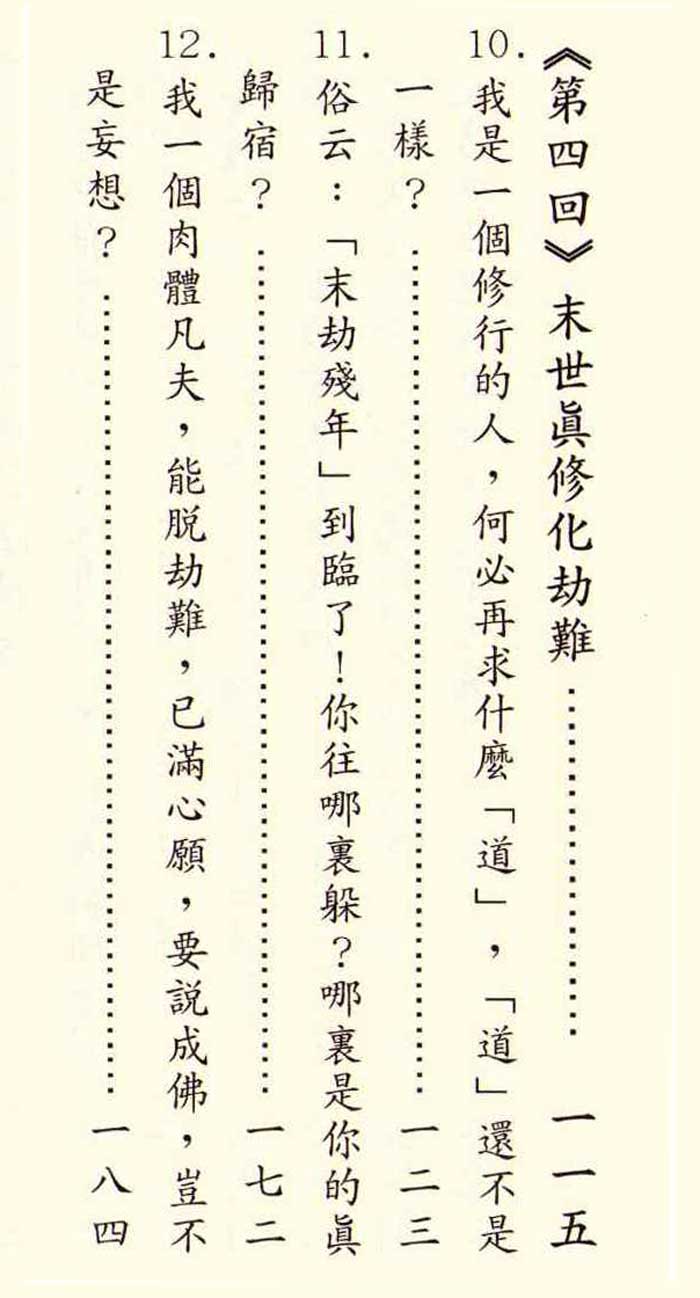 《第四回》末世眞修化劫難…………………一一五
10.我是一個修行的人，何必再求什麼「道」，「道」還不是
一樣？…………………………………………一二三
11.俗云：「末劫殘年」到臨了！你往哪裏躲？哪裏是你的眞
歸宿？…………………………………………一七二
12.我一個肉體凡夫，能脫劫難，已滿心願，要說成佛，豈不
是妄想？………………………………………一八四